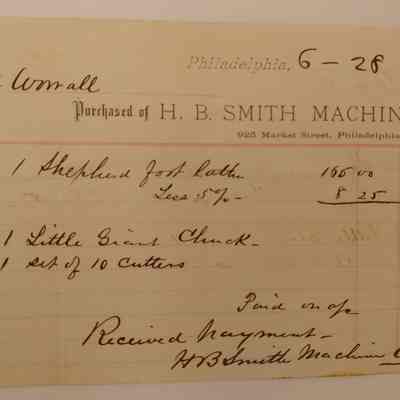 Philadelphia, 6 - 28
Worrall
Purchased of H. B. SMITH MACHIN
925 Market Street, Philadelphia
1 Shepherd foot Lathe 165 00
Less 5% 8 25
1 Little Giant Chuck -
1 set of 10 Cutters
Paid on a/c
Received Payment -
H B Smith Machine C